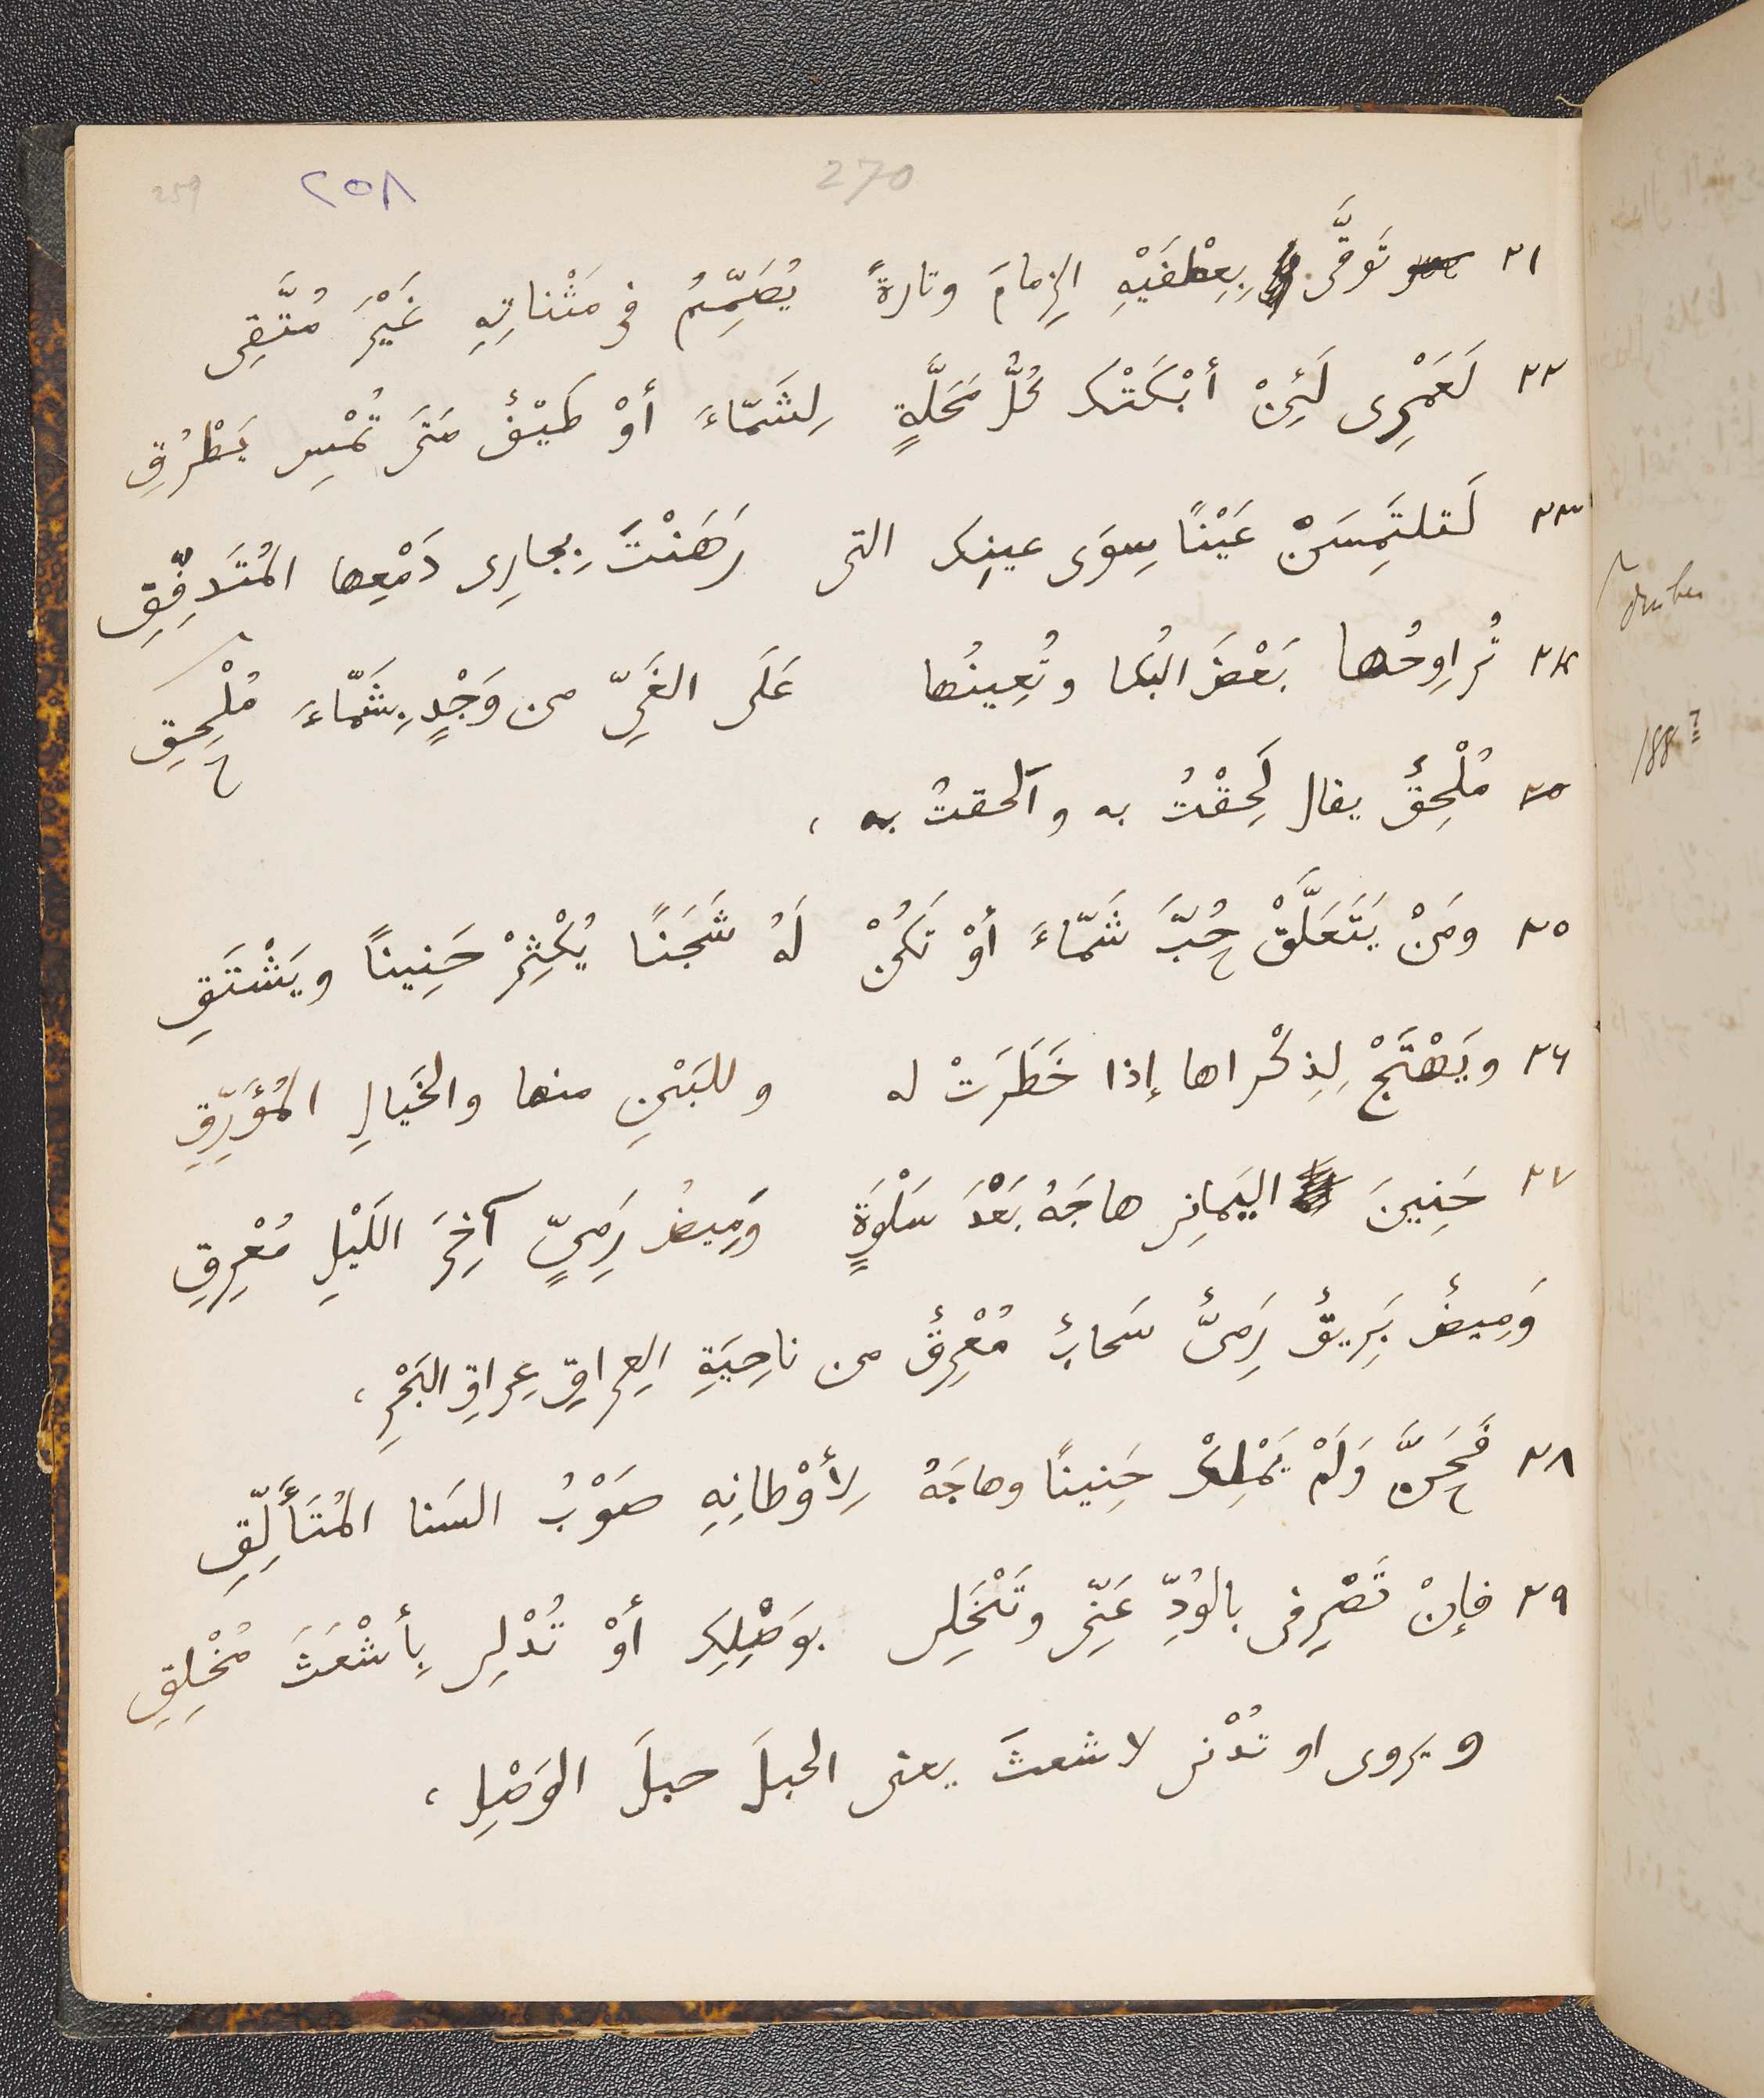 259 ٢٥٨ 270
٢١ تَوَقَّى بِعِطْفَيْهِ الزِمامَ وتارةً يُصَمِّمُ فى مَثْناتِهِ غَيْرَ مُتَّقِى
٢٢ لَعَمْرِى لَئِنْ أبْكَتْك كُلُّ مَحَلَّةٍ لِشَمّاءَ أوْ طَيْفٌ مَتَى تُمْسِ يَطْرُقِ
٢٣ لَتلتَمِسَنْ عَيْنًا سِوَى عينِك التى رَهَنْتَ بِجارِى دَمْعِها المُتَدفِّقِ
٢٤ تُراوِحُها بَعْضَ البُكا وتُعِينُها عَلَى الغَىِّ من وَجْدٍ بِشَمّاءَ مُلْحِقِ
٢٥ مُلْحِقٌ يقال لَحِقْتُ به وألحقتُ به ،
٢٥ ومَنْ يَتَعَلَّقْ حُبَّ شَمّاءَ أوْ تَكُنْ لَهُ شَجَنًا يُكْثِرْ حَنِينًا ويَشْتَقِ
٢٦ ويَهْتَجْ لِذِكْراها إذا خَطَرَتْ له وللبَيْنِ منها والخَيالِ المُؤَرِّقِ
٢٧ حَنِينَ اليَمانِى هاجَهُ بَعْدَ سَلْوَةٍ وَمِيضُ رَمِىٍّ آخِرَ اللَيْلِ مُعْرِقِ
وَمِيضٌ بَرِيقٌ رَمِىٌّ سَحابٌ مُعْرِقٌ من ناحِيَةِ العِراقِ عِراقِ البَحْرِ ،
٢٨ فَحَنَّ وَلَمْ يَمْلِكْ حَنِينًا وهاجَهُ لِأوْطانِهِ صَوْبُ السَنا المُتَأَلِّقِ
٢٩ فإنْ تَصْرِفى بالوُدِّ عَنِّى وتَبْخَلِى بوَصْلِكِ أوْ تُدْلِى بِأشْعَثَ مُخْلِقِ
ويروى او تُدْنى لاشعثَ يعنى الحبلَ حبلَ الوَصْلِ ،
188